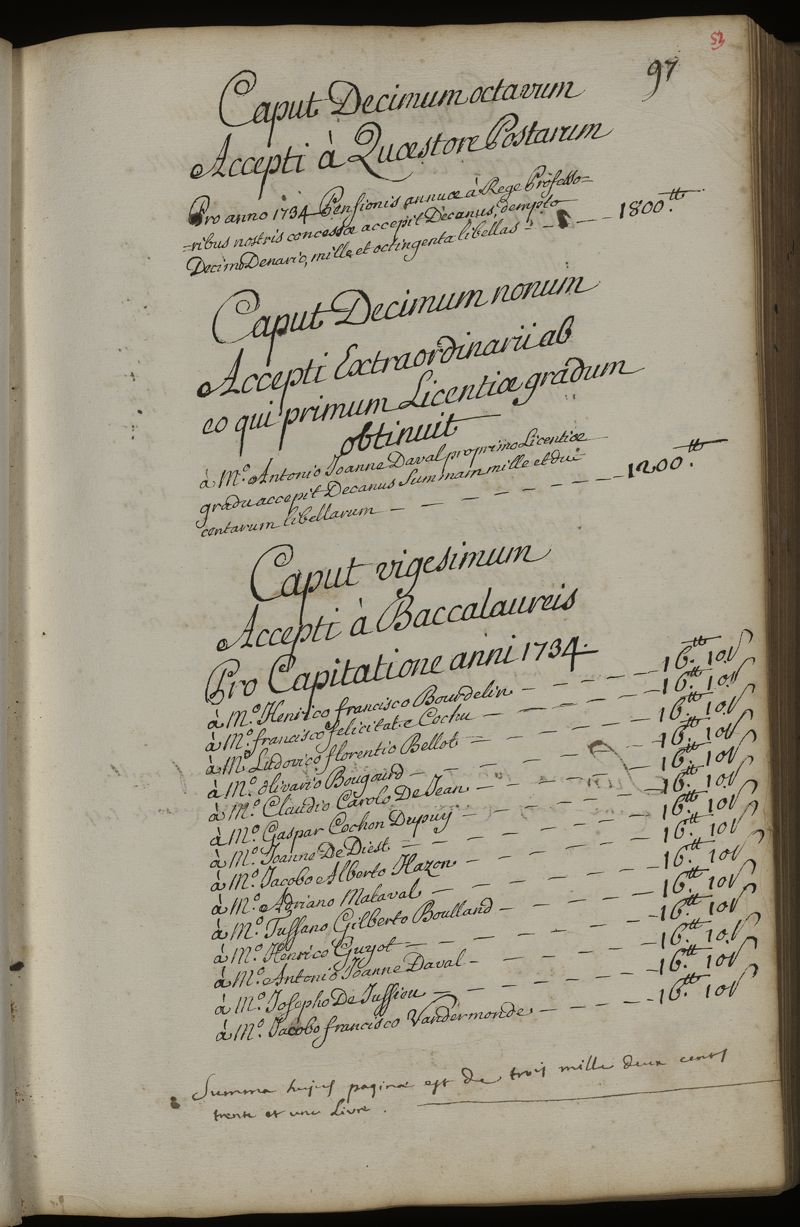 53
97
Caput Decimum octavum
Accepti à Quæstore Postarum
Pro anno 1734 Pensionis annuæ à Rege Professo=
=ribus nostris concessæ accepit Decanus, dempto
Decimo Denario, mille et octingenta libellas - - - - 1800.tt
Caput Decimum nonum
Accepti Extraordinarii ab
eo qui primum Licentiæ gradum
obtinuit
à M.o Antonio Joanne Daval pro primo Licentiæ
gradu accepit Decanus Summam mille et du
centarum libellarum - - - - - - - 1200.tt
Caput vigesimum
Accepti à Baccalaureis
Pro Capitatione anni 1734.
à M.o Henrico francisco Bourdelin - - - - - 16.tt 10s
à M.o francisco felicitate Cochu - - - - - 16.tt 10s
à M.o Ludovico florentio Bellot - - - - - 16.tt 10s
à M.o Olivario Bougourd - - - - - 16.tt 10s
à M.o Claudio Carolo De Jean - - - - - 16.tt 10s
à M.o Gaspar Cochon Dupuy - - - - - 16.tt 10s
à M.o Joanne De Diest - - - - - 16.tt 10s
à M.o Jacobo Alberto Hazon - - - - - 16.tt 10s
à M.o Adriano Malaval - - - - - 16.tt 10s
à M.o Tussano Gilberto Boulland - - - - - 16.tt 10s
à M.o Henrico Guyot - - - - - 16.tt 10s
à M.o Antonio Joanne Daval - - - - - 16.tt 10s
à M.o Josepho De Jussieu - - - - - 16.tt 10s
à M.o Jacobo francisco Vandermonde - - - - - 16.tt 10s
Summa hujus paginæ est de trois mille deux cents
trente et une Livre.